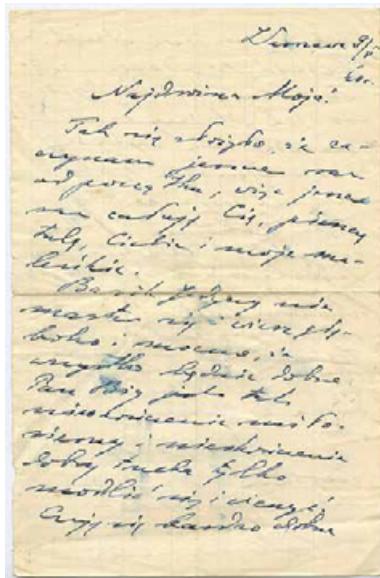 Warszawa 9/V
Najdroższa Moja!
Tak się złożyło, że za-
czynam jeszcze raz
od początku, więc jeszcze
raz całuję Cię, pieszczę
tulę, Ciebie i moje ma-
leńkie.
Basik jedyny nie
martw się i wierz głę-
boko i mocno, że
wszystko będzie dobrze
Pan Bóg jest tak
nieskończenie miło-
sierny i nieskończenie
dobry trzeba tylko
modlić się i wierzyć
Czuję się bardzo dobrze